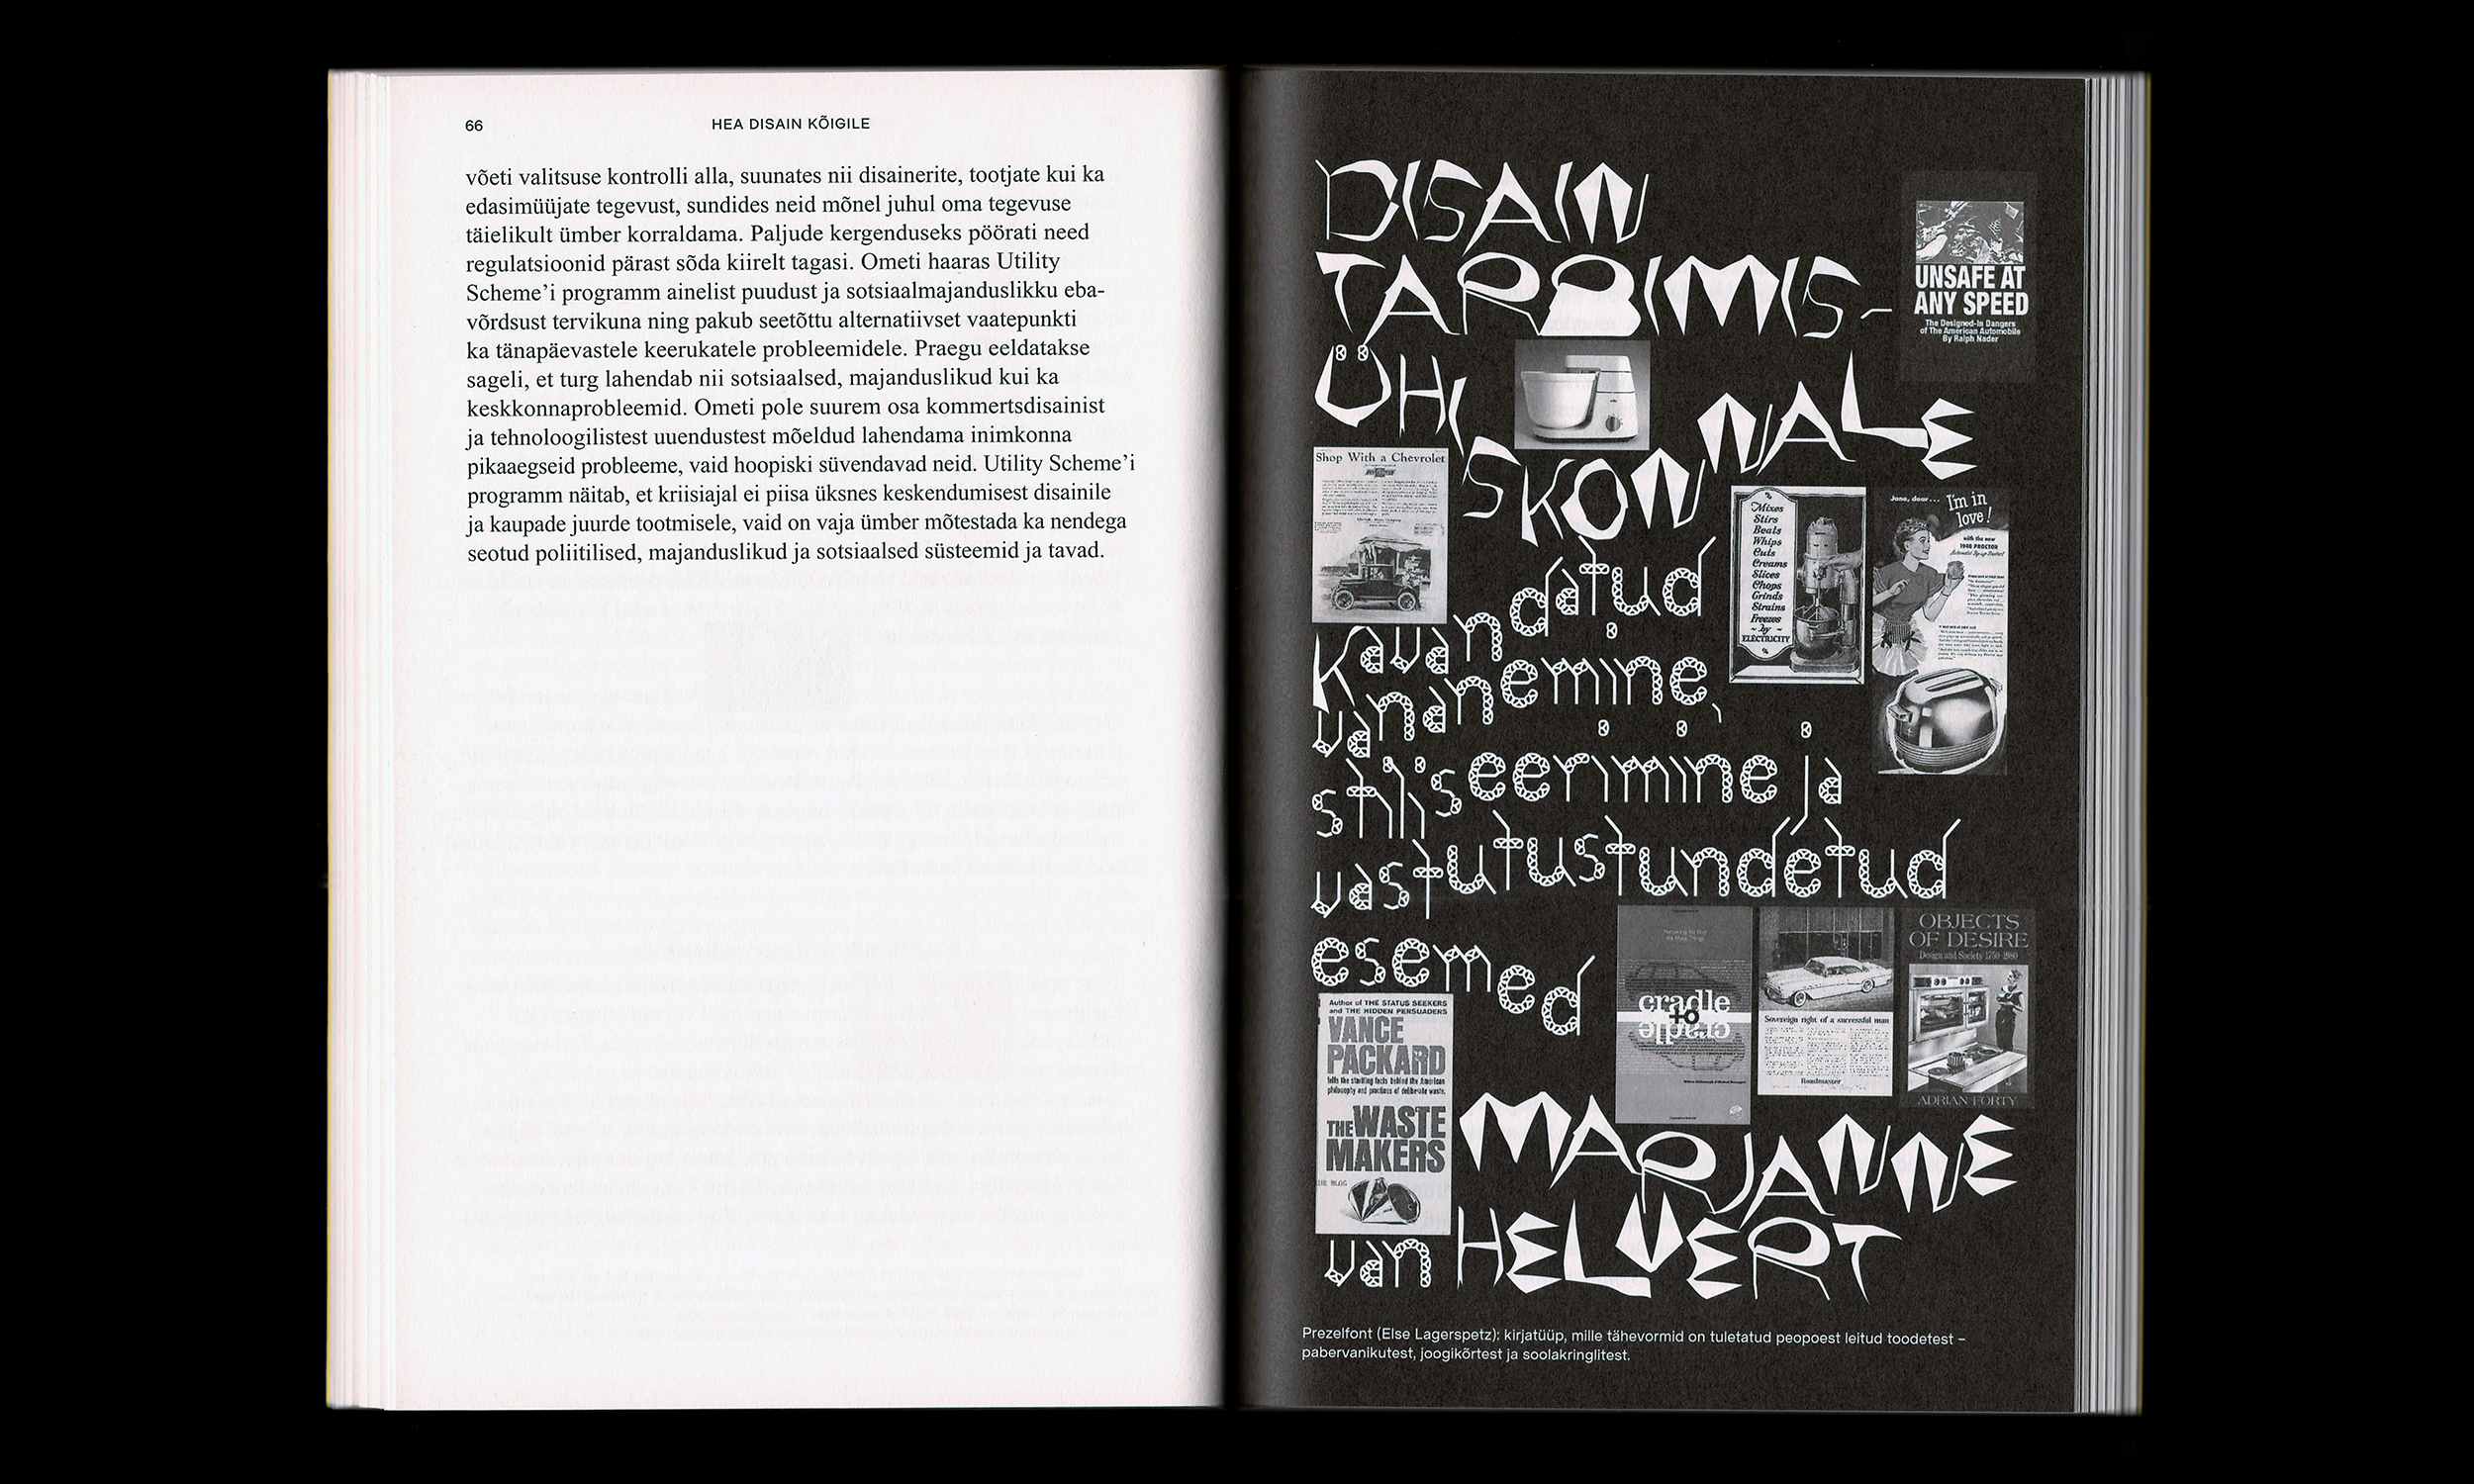 66
HEA DISAIN KÕIGILE
võeti valitsuse kontrolli alla, suunates nii disainerite, tootjate kui ka
edasimüüjate tegevust, sundides neid mõnel juhul oma tegevuse
täielikult ümber korraldama. Paljude kergenduseks pöörati need
regulatsioonid pärast sõda kiirelt tagasi. Ometi haaras Utility
Scheme’i programm ainelist puudust ja sotsiaalmajanduslikku eba-
võrdsust tervikuna ning pakub seetõttu alternatiivset vaatepunkti
ka tänapäevastele keerukatele probleemidele. Praegu eeldatakse
sageli, et turg lahendab nii sotsiaalsed, majanduslikud kui ka
keskkonnaprobleemid. Ometi pole suurem osa kommertsdisainist
ja tehnoloogilistest uuendustest mõeldud lahendama inimkonna
pikaaegseid probleeme, vaid hoopiski süvendavad neid. Utility Scheme’i
programm näitab, et kriisiajal ei piisa üksnes keskendumisest disainile
ja kaupade juurde tootmisele, vaid on vaja ümber mõtestada ka nendega
seotud poliitilised, majanduslikud ja sotsiaalsed süsteemid ja tavad.
DISAIN
TARBIMIS-
ÜHISKONNALE
UNSAFE AT
ANY SPEED
The Designed-In Dangers
of The American Automobile
By Ralph Nader
Shop With a Chevrolet
Mixes
Stirs
Beats
Whips
Cuts
Creams
Slices
Chops
Grinds
Strains
Freezes
~ by ~
ELECTRICITY
Jane, dear... I'm in
love!
with the new
1948 PROCTOR
Kavandatud
vananemine,
stiliseerimine ja
vastutustundetud
esemed
cradle
to
cradle
Sovereign right of a successful man
Roadmaster
OBJECTS
OF DESIRE
Design and Society 1750-1980
ADRIAN FORTY
Author of THE STATUS SEEKERS
and THE HIDDEN PERSUADERS
VANCE
PACKARD
tells the startling facts behind the American
philosophy and practices of deliberate waste.
THE WASTE
MAKERS
MARJANNE
van HELVERT
Prezelfont (Else Lagerspetz): kirjatüüp, mille tähevormid on tuletatud peopoest leitud toodetest –
pabervanikutest, joogikõrtest ja soolakringlitest.